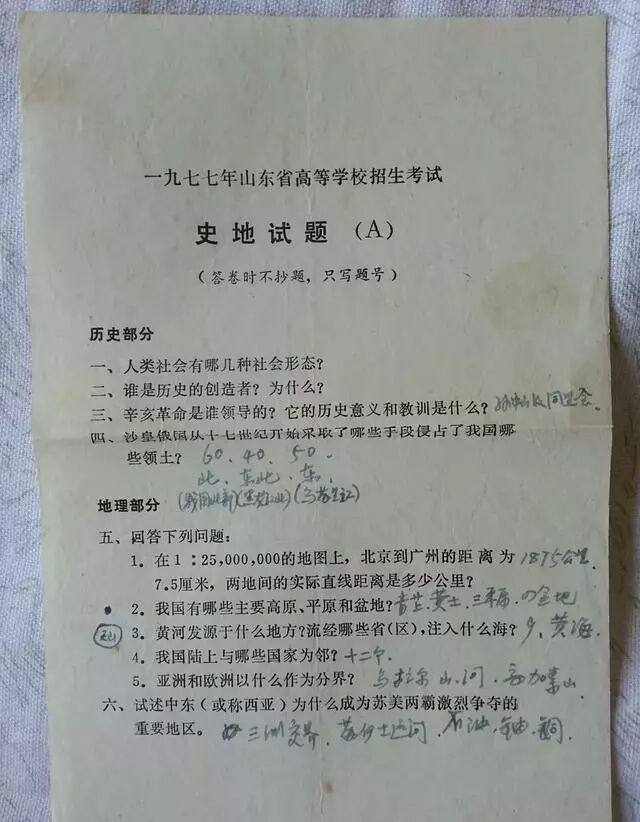 一九七七年山东省高等学校招生考试
史地试题 (A)
(答卷时不抄题,只写题号)
历史部分
一、人类社会有哪几种社会形态?
二、谁是历史的创造者?为什么?
三、辛亥革命是谁领导的?它的历史意义和教训是什么? 同盟会。
四、沙皇俄国从十七世纪开始采取了哪些手段侵占了我国哪
些领土? 60、40、50.
北、东北、东.
地理部分
五、回答下列问题:
1.在1:25,000,000的地图上,北京到广州的距离为 1875公里
7.5厘米,两地间的实际直线距离是多少公里?
2.我国有哪些主要高原、平原和盆地? 黄土、三 四盆地
3.黄河发源于什么地方?流经哪些省(区),注入什么海? 9、黄海.
4.我国陆上与哪些国家为邻? 十二个.
5.亚洲和欧洲以什么作为分界? 乌拉尔山、河、高加索山.
六、试述中东(或称西亚)为什么成为苏美两霸激烈争夺的
重要地区。 三洲交界、苏伊士运河、石油、铀、铜.